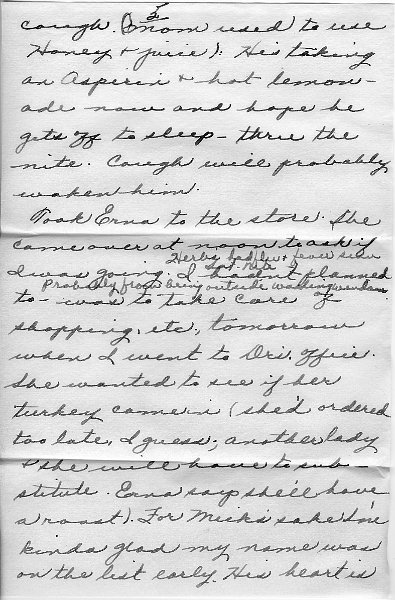 cough. (Mom used to use
Honey & juice). His taking
an Asperin & hot lemon-
ade now and hope he
gets off to sleep - thru the
nite. Cough will probably
waken him.
Took Erna to the store. She
came over at noon to ask if
Herbs had flu & fever since
Sat. Nite
I was going. I hadn't planned
Probably from being outside washing windows
to - was to take care of
shopping, etc., tomorrow
when I went to Drs. office.
She wanted to see if her
turkey came in (she'd ordered
too late, I guess; another lady
& she will have to sub-
stitute. Erna says she'll have
a roast). For Meck's sake I'm
kinda glad my name was
on the list early. His heart is